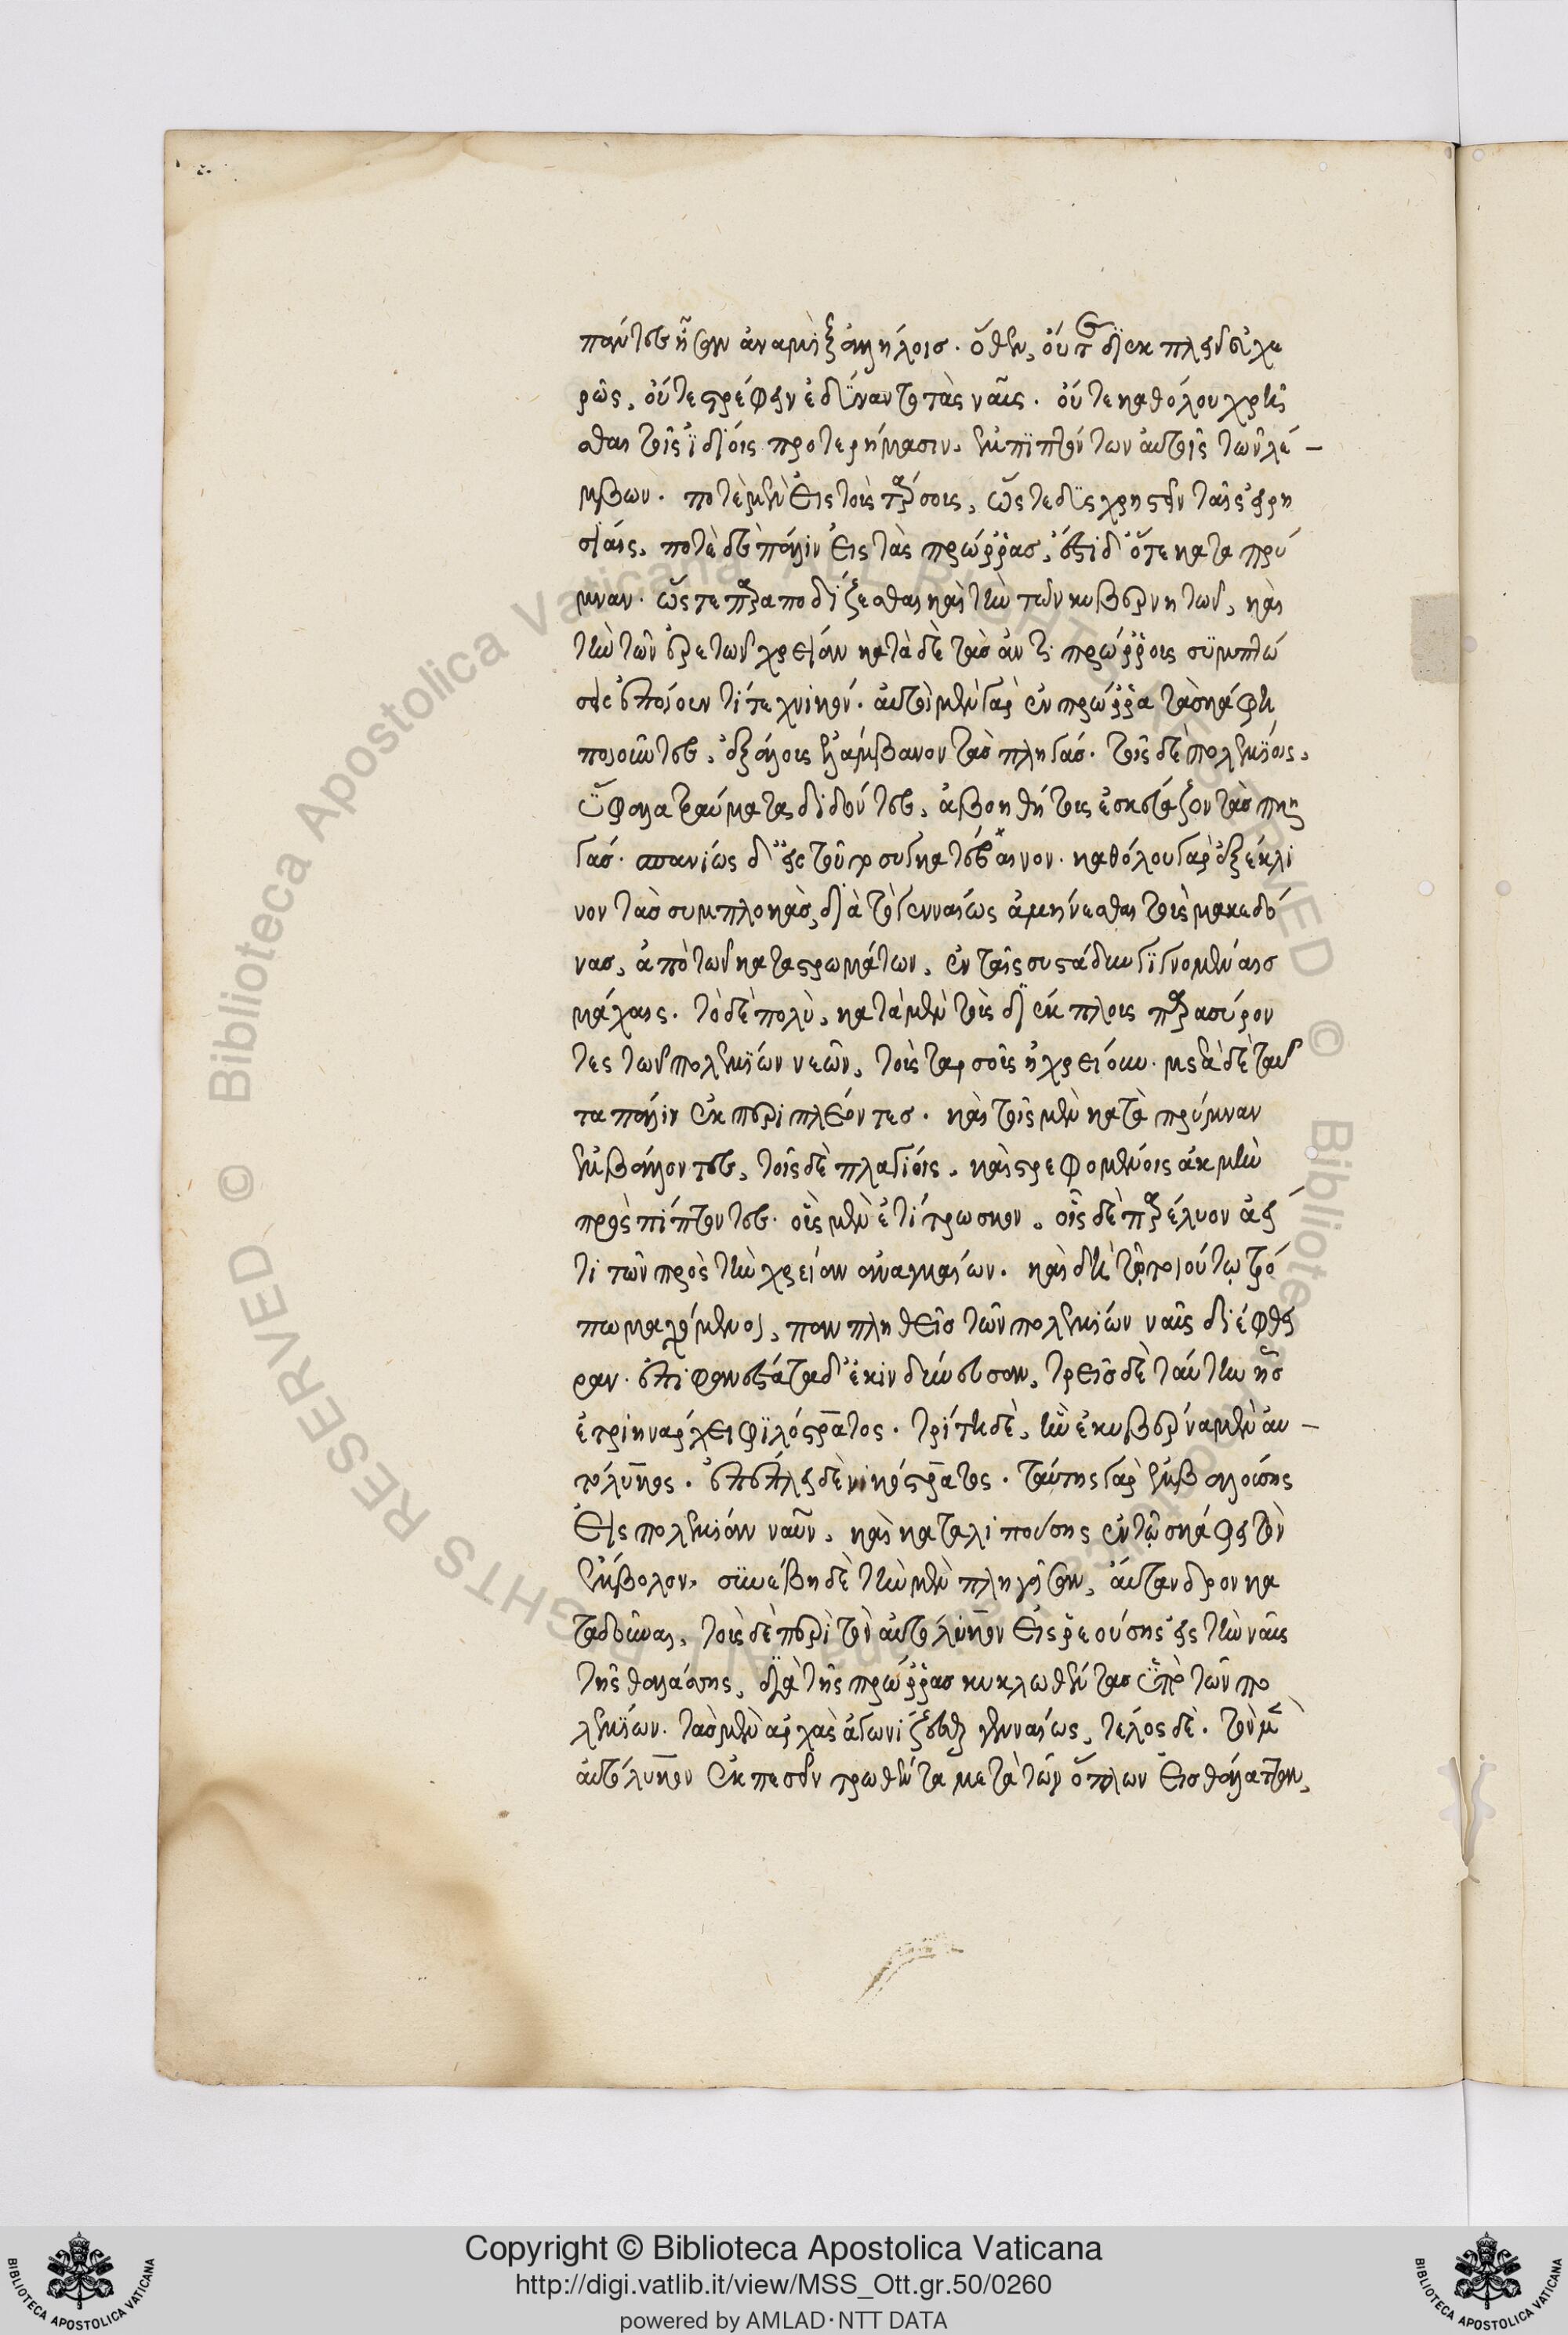 πάντες ἦσαν ἀναμὶξ ἀλλήλοις. ὅθεν, οὔτε διεκπλεῖν εὐχε
ρῶς, οὔτε στρέφειν ἐδύναντο τὰς ναῦς. οὔτε καθόλου χρῆ
σθαι τοῖς ἰδίοις προτερήμασιν. ἐμπιπτόντων αὐτοῖς τῶν λέ-
μβων. ποτὲ μὲν εἰς τοὺς ταρσοὺς, ὥστε δυσχρηστεῖν ταῖς εἰρε
σίαις, ποτὲ δὲ πάλιν εἰς τὰς πρώρρας, ἔστι δ' ὅτε κατὰ πρύ
μναν. ὥστε παραποδίζεσθαι καὶ τὴν τῶν κυβερνητῶν, καὶ
τὴν τῶν ἐρετῶν χρείαν κατὰ δὲ τὰς ἀντιπρώρρους συμπτώ
σεις ἐποίουν τι τεχνικόν. αὐτοὶ μὲν γὰρ ἐν πρώρρα τὰ σκάφη
ποιοῦντες, ἐξάλους ἐλάμβανον τὰς πληγάς. τοῖς δὲ πολεμίοις,
ὕφαλα τραύματα διδόντες, ἀβοηθήτους ἐσκεύαζον τὰς πλη
γάς. σπανίως δ' εἰς τοῦτο συγκατέβαινον. καθόλου γὰρ ἐξέκλι
νον τὰς συμπλοκὰς, διὰ τὸ γενναίως ἀμύνεσθαι τοὺς μακεδό
νας, ἀπὸ τῶν καταστρωμάτων, ἐν ταῖς συστάδην γιγνομέναις
μάχαις. τὸ δὲ πολὺ, κατὰ μὲν τοὺς διέκπλους παρασύρον
τες τῶν πολεμίων νεῶν, τοὺς ταρσοὺς ἠχρείουν. μετὰ δὲ ταῦ
τα πάλιν ἐκπεριπλέοντες. καὶ τοῖς μὲν κατὰ πρύμναν
ἐμβάλλοντες, τοῖς δὲ πλαγίοις, καὶ στρεφομένοις ἀκμὴν
προσπίπτοντες. οὓς μὲν ἐτίτρωσκον, οἷς δὲ παρέλυον ἀεί
τι τῶν πρὸς τὴν χρείαν ἀναγκαίων. καὶ δὴ τῷ τοιούτῳ τρό
πῳ μαχόμενοι, παμπληθεῖς τῶν πολεμίων ναῦς διέφθει
ραν. ἐπιφανέστατα δ' ἐκινδύνευσαν, τρεῖς δὲ ταύτην ἧς
ἐτριηράρχει φιλόστρατος. τρίτη δὲ, ἣν ἐκυβέρνα μὲν αὐ-
τόλυκος. ἐπέπλει δὲ νικόστρατος. ταύτης γὰρ ἐμβαλούσης
εἰς πολεμίαν ναῦν, καὶ καταλιπούσης ἐν τῷ σκάφει τὸν
ἔμβολον, συνέβη δὲ τὴν μὲν πληγεῖσαν, αὔτανδρον κα
ταδῦναι, τοὺς δὲ περὶ τὸν αὐτόλυκον εἰσρεούσης εἰς τὴν ναῦς
τῆς θαλάσσης, διὰ τῆς πρώρρας κυκλωθέντας ὑπὸ τῶν πο
λεμίων. τὰς μὲν ἀρχὰς ἀγωνίζεσθαι γενναίως, τέλος δὲ. τὸν μὲν
αὐτόλυκον ἐκπεσεῖν τρωθέντα μετὰ τῶν ὅπλων εἰς θάλατταν,
Copyright © Biblioteca Apostolica Vaticana
http://digi.vatlib.it/view/MSS_Ott.gr.50/0260
powered by AMLAD·NTT DATA